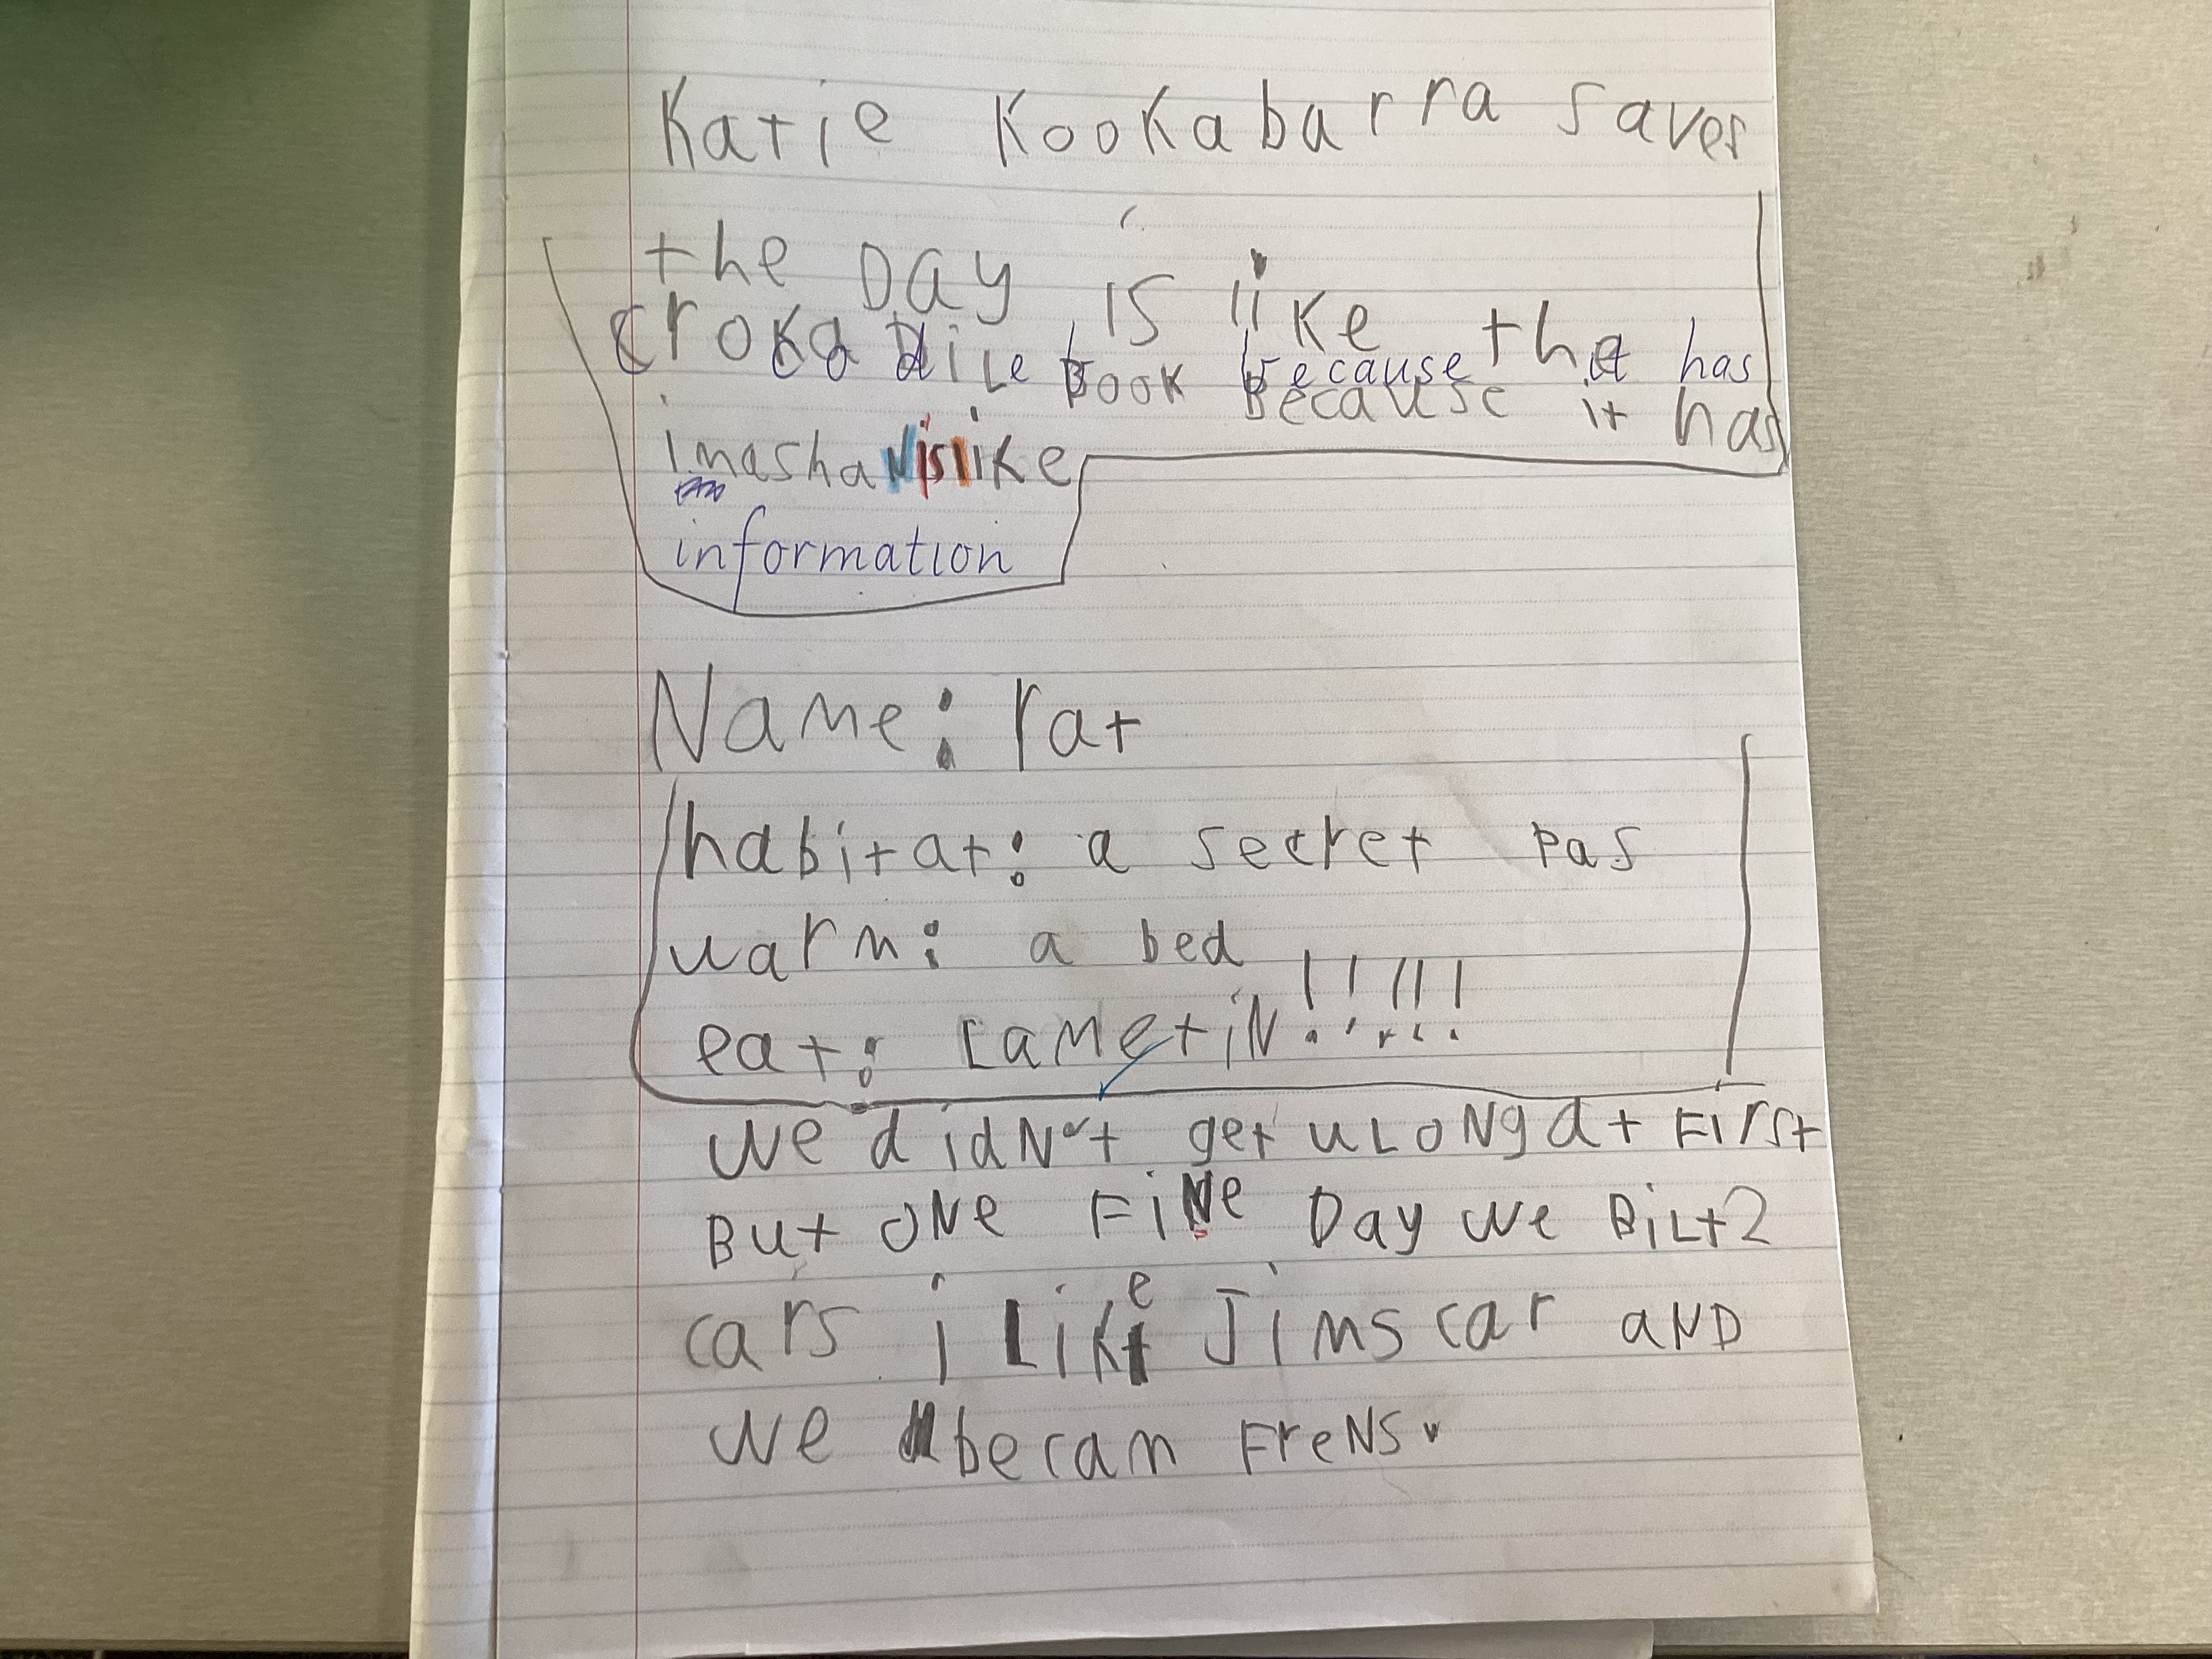 Katie Kookabarra saves
the Day is like the
crokadile Book because it has
because it has
imashanislike
information
Name: rat
habitat: a secret pas
warm: a bed
eat: cametiN!!!!!
we didN't get uLoNg at First
But oNe FiNe Day we BiLt 2
cars i Like Jims car aND
we becam FreNs.